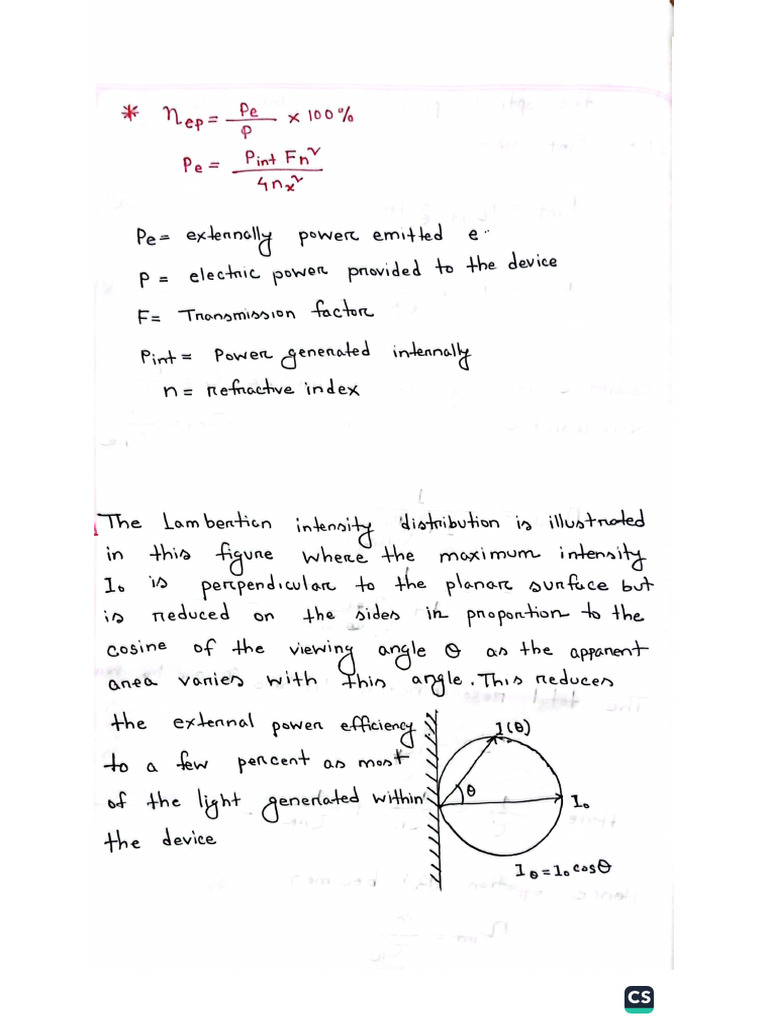 * η_ep = Pe / P × 100%
Pe = Pint Fn² / 4nx²
Pe = externally power emitted e
P = electric power provided to the device
F = Transmission factor
Pint = Power generated internally
n = refractive index
The Lambertian intensity distribution is illustrated
in this figure where the maximum intensity
I₀ is perpendicular to the planar surface but
is reduced on the sides in proportion to the
cosine of the viewing angle θ as the apparent
area varies with this angle. This reduces
the external power efficiency
to a few percent as most
of the light generated within
the device
I(θ)
θ
I₀
Iθ = I₀ cosθ
CS